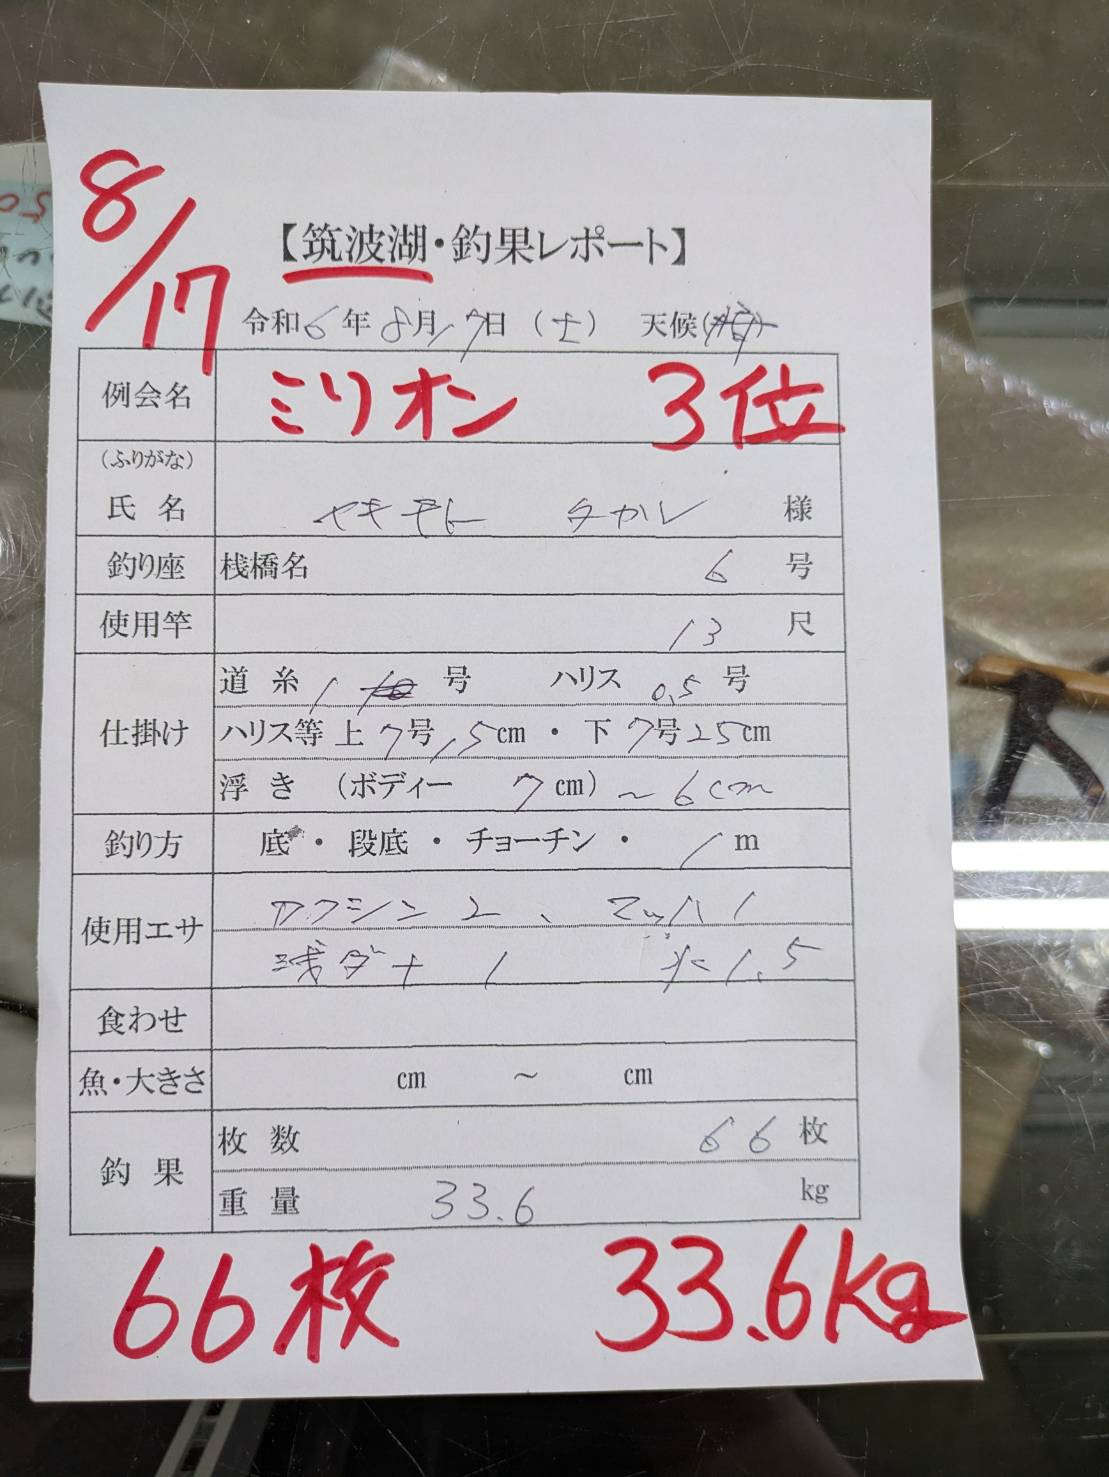 8/17
【筑波湖・釣果レポート】
令和6年8月17日（土） 天候（晴）
例会名 ミリオン 3位
（ふりがな）
氏名 セキモト タカル 様
釣り座 桟橋名 6号
使用竿 13尺
仕掛け
道糸 1 号 ハリス 0.5号
ハリス等 上7号15cm・下7号25cm
浮き （ボディー 7cm）～6cm
釣り方 底・段底・チョーチン・1m
使用エサ
カクシン2、マッハ1
浅ダナ1 水1.5
食わせ
魚・大きさ cm ～ cm
釣果
枚数 66枚
重量 33.6 kg
66枚 33.6kg